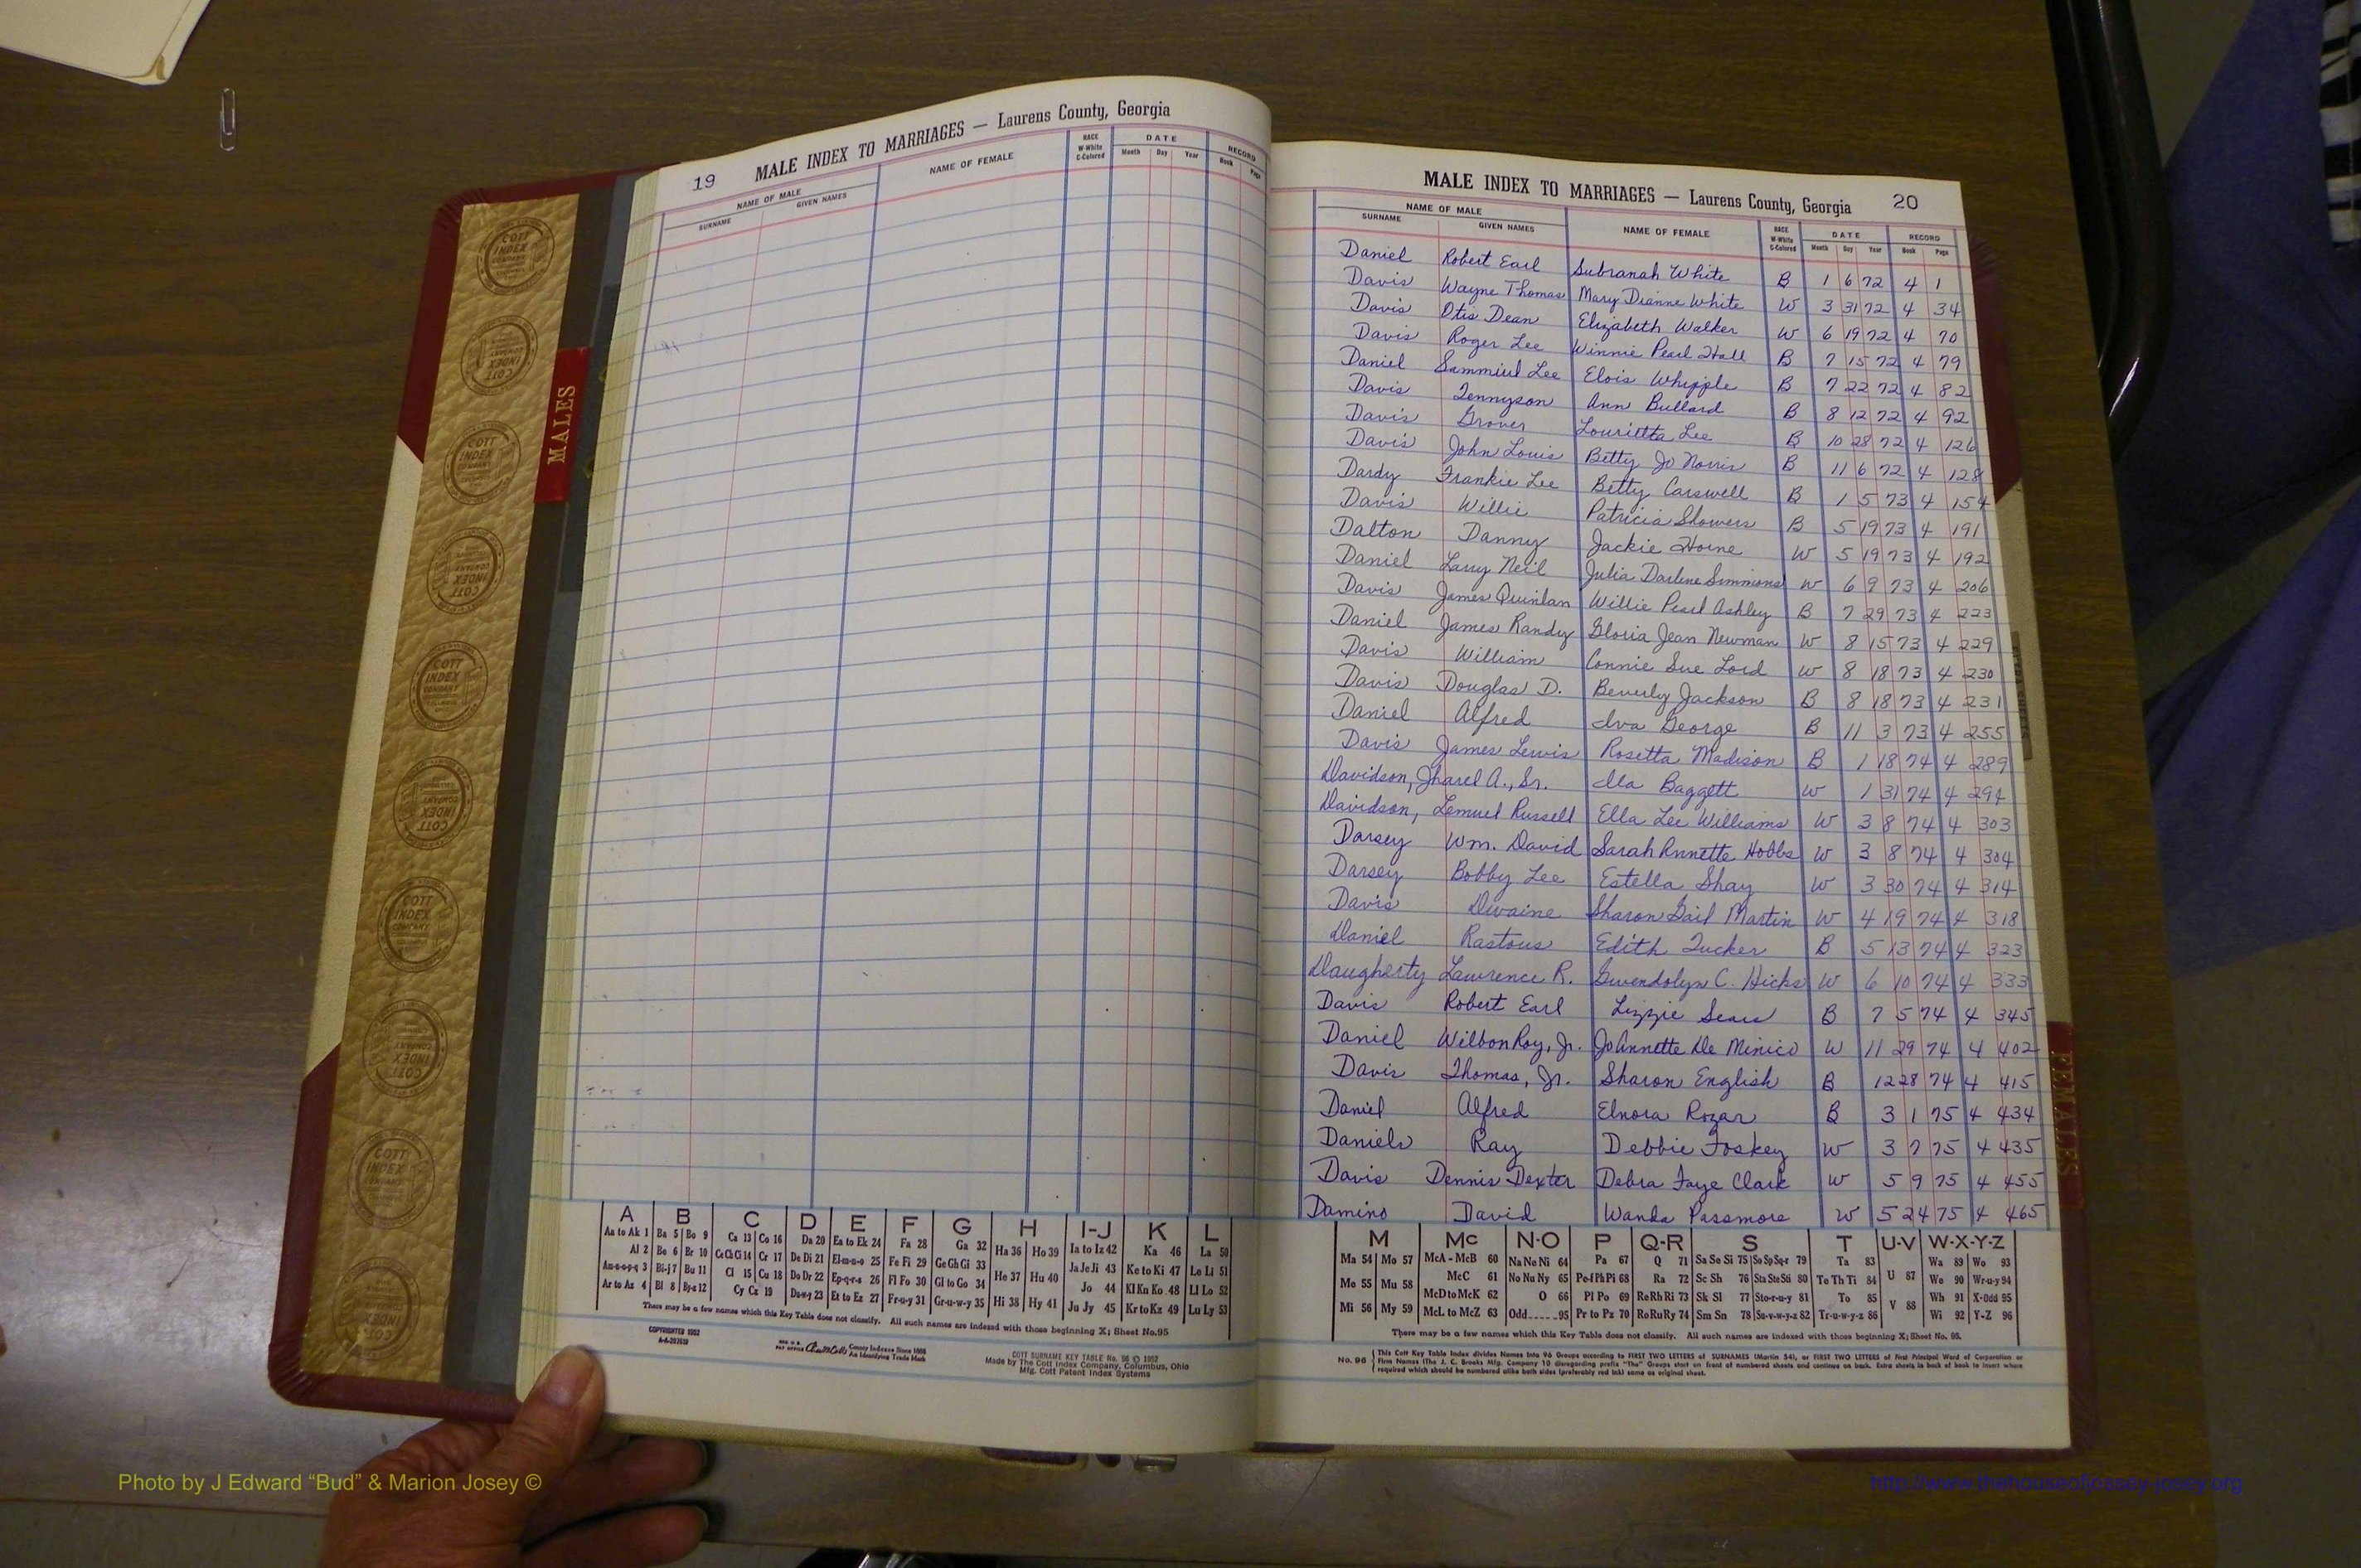 19 MALE INDEX TO MARRIAGES — Laurens County, Georgia
NAME OF MALE NAME OF FEMALE RACE W-White C-Colored DATE RECORD
SURNAME GIVEN NAMES Month Day Year Book Page
MALES
A B C D E F G H I-J K L
Aa to Ak 1 Ba 5 Bo 9 Ca 13 Co 16 Da 20 Ea to Ek 24 Fa 28 Ga 32 Ha 36 Ho 39 Ia to Iz 42 Ka 46 La 50
Al 2 Be 6 Br 10 Ce Ch Ci 14 Cr 17 De Di 21 El-m-n-o 25 Fe Fi 29 Ge Gh Gi 33 He 37 Hu 40 Ja Je Ji 43 Ke to Ki 47 Le Li 51
Am-n-o-p-q 3 Bi-j 7 Bu 11 Cl 15 Cu 18 Do Dr 22 Ep-q-r-s 26 Fl Fo 30 Gl to Go 34 Hi 38 Hy 41 Jo 44 Kl Kn Ko 48 Ll Lo 52
Ar to Az 4 Bl 8 By-z 12 Cy Cz 19 Du-w-y 23 Et to Ez 27 Fr-u-y 31 Gr-u-w-y 35 Ju Jy 45 Kr to Kz 49 Lu Ly 53
There may be a few names which this Key Table does not classify. All such names are indexed with those beginning X; Sheet No. 95
COPYRIGHTED 1952
County Indexes Since 1888
An Identifying Trade Mark
COTT SURNAME KEY TABLE No. 96 © 1952
Made by The Cott Index Company, Columbus, Ohio
Mfg. Cott Patent Index Systems
MALE INDEX TO MARRIAGES — Laurens County, Georgia 20
NAME OF MALE NAME OF FEMALE RACE W-White C-Colored DATE RECORD
SURNAME GIVEN NAMES Month Day Year Book Page
Daniel Robert Earl Subranah White B 1 6 72 4 1
Davis Wayne Thomas Mary Dianne White W 3 31 72 4 34
Davis Otis Dean Elizabeth Walker W 6 19 72 4 70
Davis Roger Lee Winnie Pearl Hall B 7 15 72 4 79
Daniel Sammiul Lee Elois Whipple B 7 22 72 4 82
Davis Tennyson Ann Bullard B 8 12 72 4 92
Davis Grover Lourietta Lee B 10 28 72 4 126
Davis John Louis Betty Jo Norris B 11 6 72 4 128
Dardy Frankie Lee Betty Carswell B 1 5 73 4 154
Davis Willie Patricia Showers B 5 19 73 4 191
Dalton Danny Jackie Horne W 5 19 73 4 192
Daniel Larry Neil Julia Darlene Simmons W 6 9 73 4 206
Davis James Quinlan Willie Pearl Ashley B 7 29 73 4 223
Daniel James Randy Gloria Jean Newman W 8 15 73 4 229
Davis William Connie Sue Lord W 8 18 73 4 230
Davis Douglas D. Beverly Jackson B 8 18 73 4 231
Daniel Alfred Iva George B 11 3 73 4 255
Davis James Lewis Rosetta Madison B 1 18 74 4 289
Davidson, Jharel A., Sr. Ila Baggett W 1 31 74 4 294
Davidson, Lemuel Russell Ella Lee Williams W 3 8 74 4 303
Darsey Wm. David Sarah Annette Hobbs W 3 8 74 4 304
Darsey Bobby Lee Estella Shay W 3 30 74 4 314
Davis Dwaine Sharon Gail Martin W 4 19 74 4 318
Daniel Rastous Edith Tucker B 5 13 74 4 323
Daugherty Lawrence R. Gwendolyn C. Hicks W 6 10 74 4 333
Davis Robert Earl Lizzie Sears B 7 5 74 4 345
Daniel Wilbon Roy, Jr. JoAnnette De Minico W 11 29 74 4 402
Davis Thomas, Jr. Sharon English B 12 28 74 4 415
Daniel Alfred Elnora Rozar B 3 1 75 4 434
Daniels Ray Debbie Foskey W 3 7 75 4 435
Davis Dennis Dexter Debra Faye Clark W 5 9 75 4 455
Damino David Wanda Passmore W 5 24 75 4 465
FEMALES
M Mc N-O P Q-R S T U-V W-X-Y-Z
Ma 54 Mo 57 McA - McB 60 Na Ne Ni 64 Pa 67 Q 71 Sa Se Si 75 So Sp Sq-r 79 Ta 83 U 87 Wa 89 Wo 93
Me 55 Mu 58 McC 61 No Nu Ny 65 Pe-f Ph Pi 68 Ra 72 Sc Sh 76 Sta Ste Sti 80 Te Th Ti 84 We 90 Wr-u-y 94
McD to McK 62 O 66 Pl Po 69 Re Rh Ri 73 Sk Sl 77 Sto-r-u-y 81 To 85 V 88 Wh 91 X-Odd 95
Mi 56 My 59 McL to McZ 63 Odd.....95 Pr to Pz 70 Ro Ru Ry 74 Sm Sn 78 Su-v-w-y-z 82 Tr-u-w-y-z 86 Wi 92 Y-Z 96
There may be a few names which this Key Table does not classify. All such names are indexed with those beginning X; Sheet No. 95.
No. 96 This Cott Key Table Index divides Names into 96 Groups according to FIRST TWO LETTERS of SURNAMES (Martin 54), or FIRST TWO LETTERS of First Principal Word of Corporation or
Firm Names (The J. C. Brooks Mfg. Company 10 disregarding prefix "The" Groups start on front of numbered sheets and continue on back. Extra sheets in back of book to insert where
required which should be numbered alike both sides (preferably red ink) same as original sheet.
Photo by J Edward “Bud” & Marion Josey ©
http://www.thehouseofjossey-josey.org